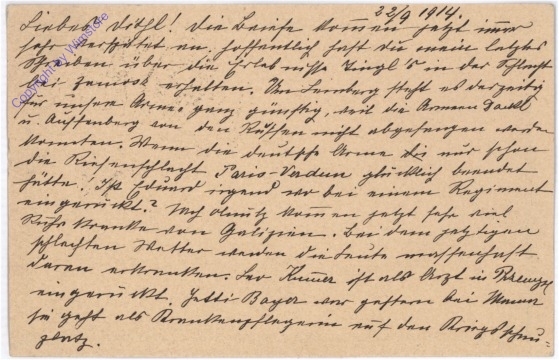 22/9 1914.
Lieber Döthl! Die Briefe kommen jetzt immer
sehr verspätet an. Hoffentlich hast du mein letztes
Schreiben über die Erlebnisse in der Schlacht
bei Zamosc erhalten. Um Lemberg steht es derzeitig
für unsere Armee ganz günftig, weil die Armeen Dankl
u. Auffenberg von den Russen nicht abgefangen werden
konnten. Wenn die deutsche Armee nur schon
die Riesenschlacht Paris-Verdun glücklich beendet
hätte! Ist Eduard irgend wo bei einem Regiment
eingerückt? Nach Olmütz kommen jetzt sehr viel
Ruhrkranke von Galizien. Bei dem jetzigen
schlechten Wetter werden die Leute massenhaft
daran erkranken. Leo ist als Arzt in
eingerückt. Jetti Bayer war gestern bei Mama
sie geht als Krankenpflegerin auf den Kriegsschau-
platz.
Copyright by Wimstore